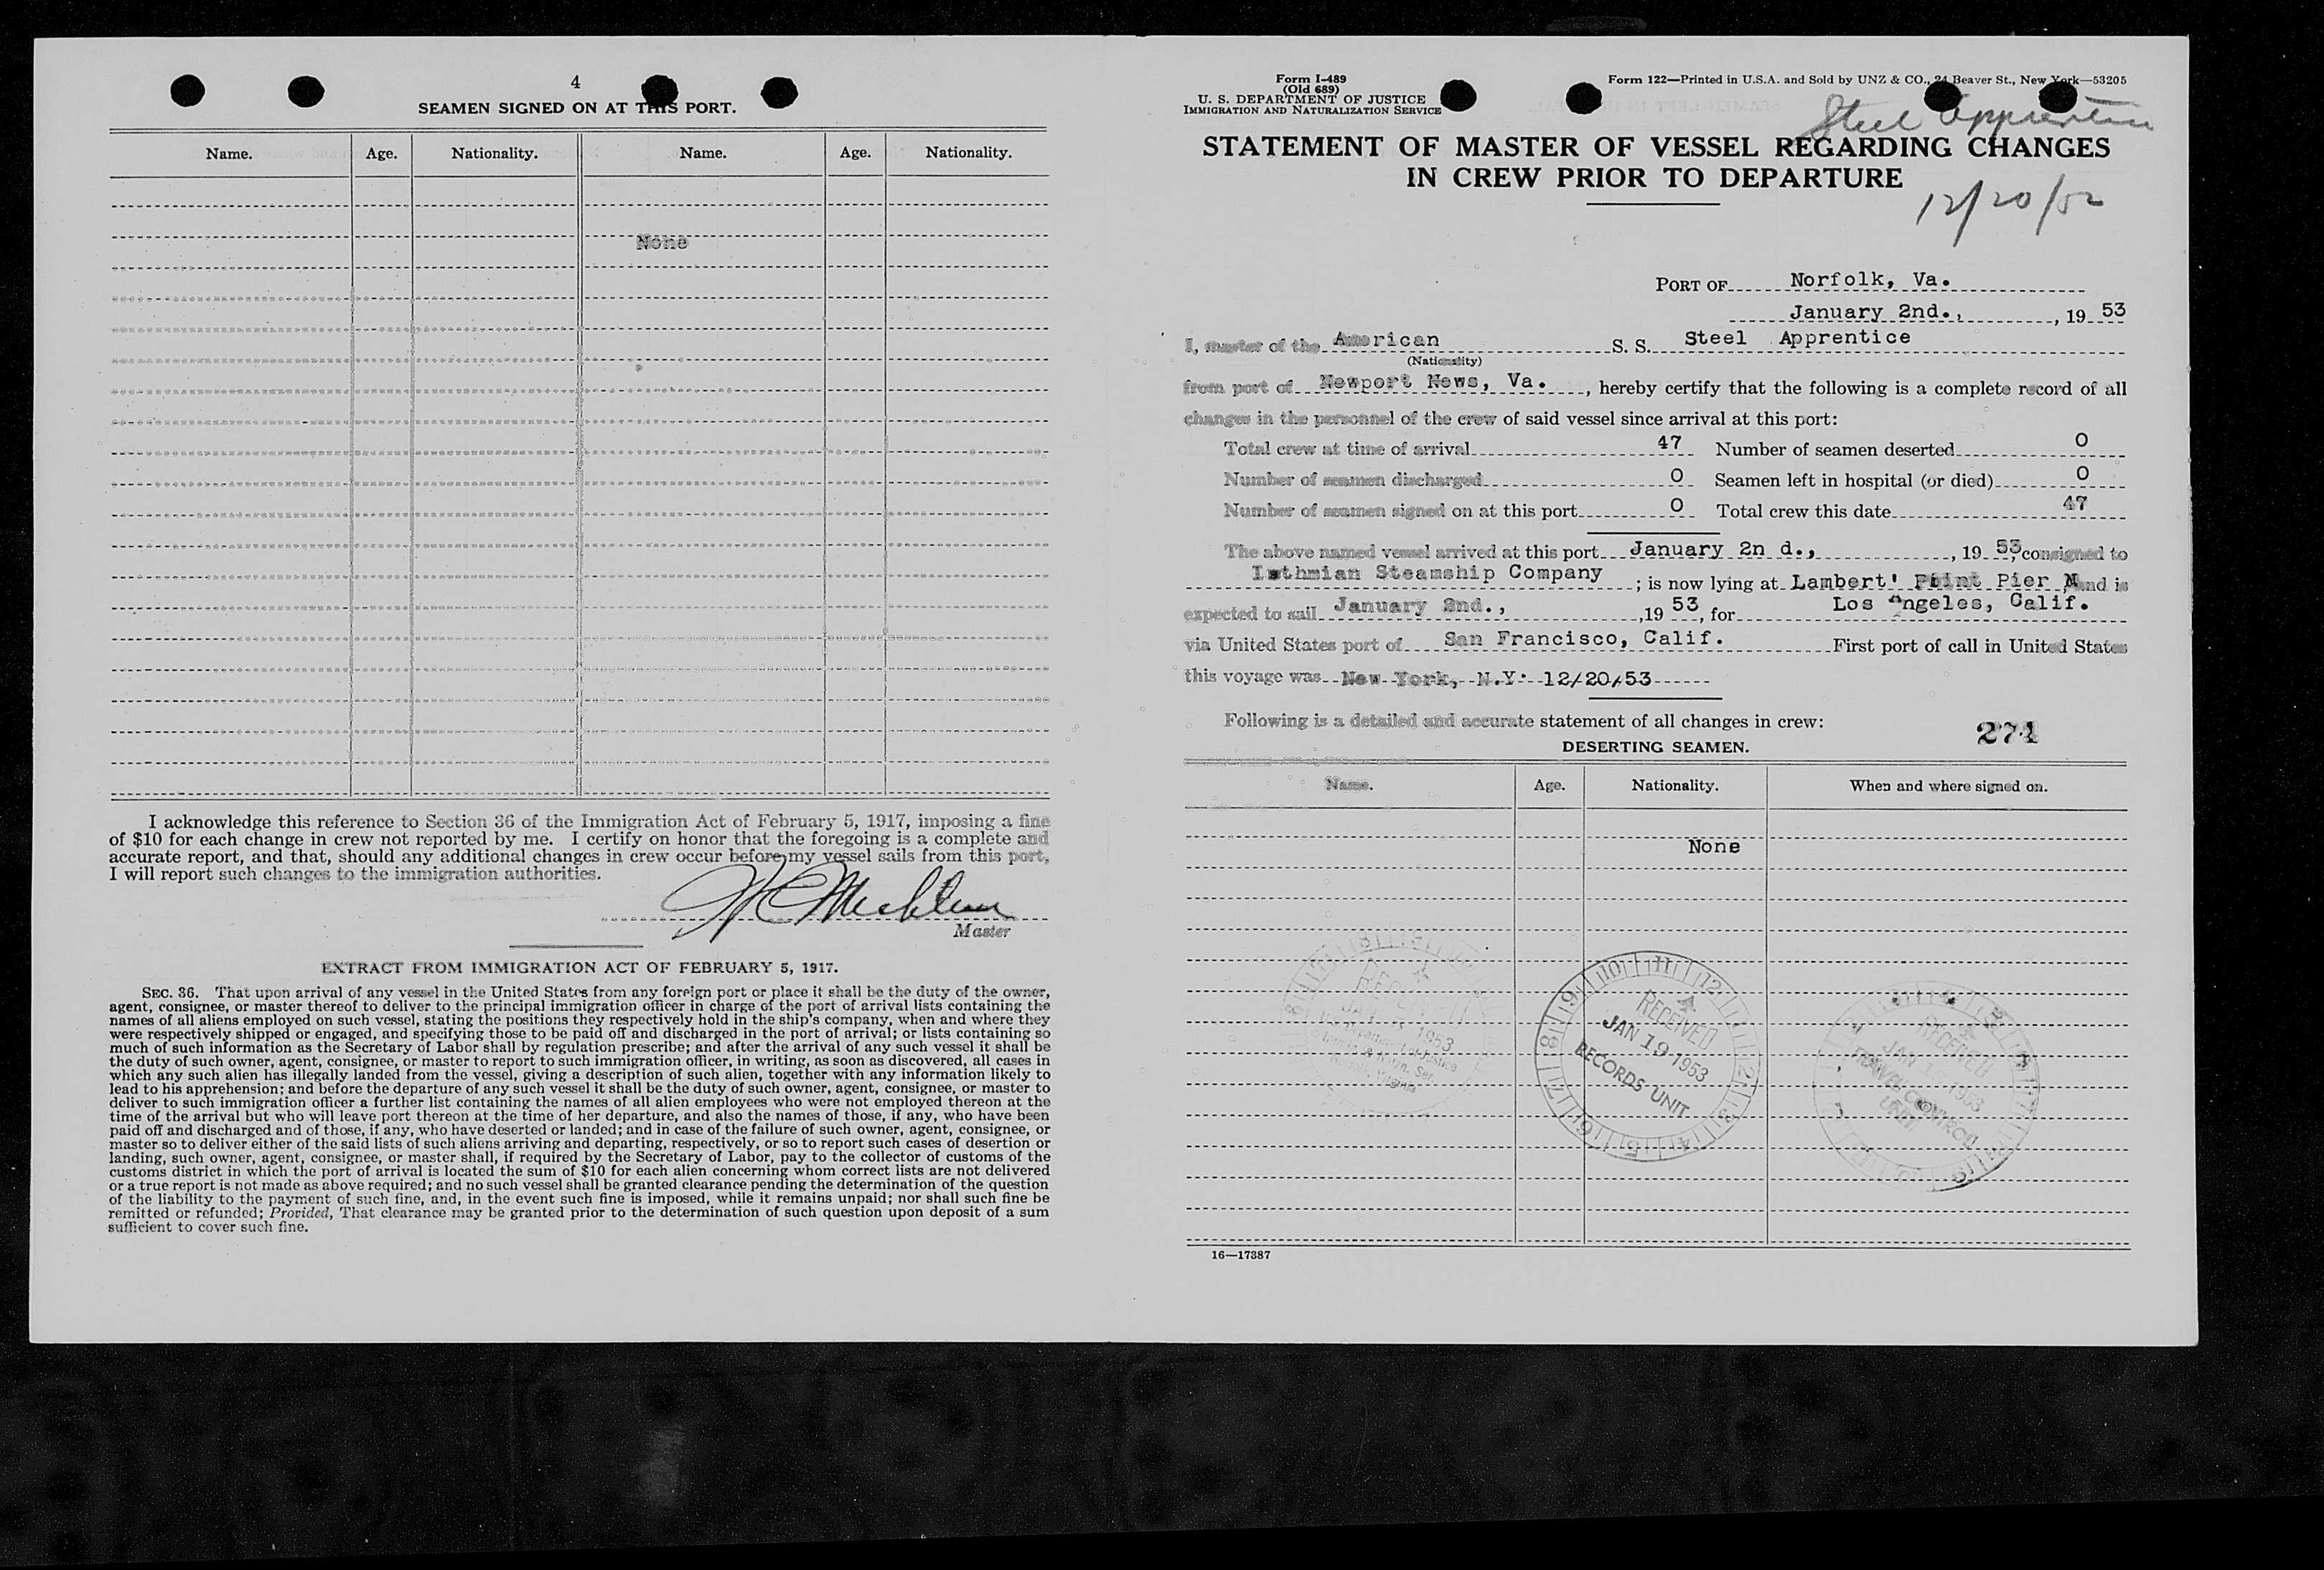 4
SEAMEN SIGNED ON AT THIS PORT.
Name. Age. Nationality. Name. Age. Nationality.
None
I acknowledge this reference to Section 36 of the Immigration Act of February 5, 1917, imposing a fine
of $10 for each change in crew not reported by me. I certify on honor that the foregoing is a complete and
accurate report, and that, should any additional changes in crew occur before my vessel sails from this port,
I will report such changes to the immigration authorities.
Master
EXTRACT FROM IMMIGRATION ACT OF FEBRUARY 5, 1917.
SEC. 36. That upon arrival of any vessel in the United States from any foreign port or place it shall be the duty of the owner,
agent, consignee, or master thereof to deliver to the principal immigration officer in charge of the port of arrival lists containing the
names of all aliens employed on such vessel, stating the positions they respectively hold in the ship's company, when and where they
were respectively shipped or engaged, and specifying those to be paid off and discharged in the port of arrival; or lists containing so
much of such information as the Secretary of Labor shall by regulation prescribe; and after the arrival of any such vessel it shall be
the duty of such owner, agent, consignee, or master to report to such immigration officer, in writing, as soon as discovered, all cases in
which any such alien has illegally landed from the vessel, giving a description of such alien, together with any information likely to
lead to his apprehension; and before the departure of any such vessel it shall be the duty of such owner, agent, consignee, or master to
deliver to such immigration officer a further list containing the names of all alien employees who were not employed thereon at the
time of the arrival but who will leave port thereon at the time of her departure, and also the names of those, if any, who have been
paid off and discharged and of those, if any, who have deserted or landed; and in case of the failure of such owner, agent, consignee, or
master so to deliver either of the said lists of such aliens arriving and departing, respectively, or so to report such cases of desertion or
landing, such owner, agent, consignee, or master shall, if required by the Secretary of Labor, pay to the collector of customs of the
customs district in which the port of arrival is located the sum of $10 for each alien concerning whom correct lists are not delivered
or a true report is not made as above required; and no such vessel shall be granted clearance pending the determination of the question
of the liability to the payment of such fine, and, in the event such fine is imposed, while it remains unpaid; nor shall such fine be
remitted or refunded; Provided, That clearance may be granted prior to the determination of such question upon deposit of a sum
sufficient to cover such fine.
Form I-489
(Old 689)
U. S. DEPARTMENT OF JUSTICE
IMMIGRATION AND NATURALIZATION SERVICE
Form 122—Printed in U.S.A. and Sold by UNZ & CO., 24 Beaver St., New York—53205
Steel Apprentice
STATEMENT OF MASTER OF VESSEL REGARDING CHANGES
IN CREW PRIOR TO DEPARTURE
12/20/52
PORT OF Norfolk, Va.
January 2nd., , 19 53
I, master of the American S. S. Steel Apprentice
(Nationality)
from port of Newport News, Va. , hereby certify that the following is a complete record of all
changes in the personnel of the crew of said vessel since arrival at this port:
Total crew at time of arrival 47 Number of seamen deserted 0
Number of seamen discharged 0 Seamen left in hospital (or died) 0
Number of seamen signed on at this port 0 Total crew this date 47
The above named vessel arrived at this port January 2n d., , 19 53, consigned to
Isthmian Steamship Company ; is now lying at Lambert' Point Pier N and is
expected to sail January 2nd., ,19 53, for Los Angeles, Calif.
via United States port of San Francisco, Calif. First port of call in United States
this voyage was New York, N.Y. 12/20/53
Following is a detailed and accurate statement of all changes in crew:
271
DESERTING SEAMEN.
Name. Age. Nationality. When and where signed on.
None
RECEIVED
JAN 1953
RECEIVED
JAN 19 1953
RECORDS UNIT
RECEIVED
JAN 1953
TRAVEL CONTROL
UNIT
16—17387